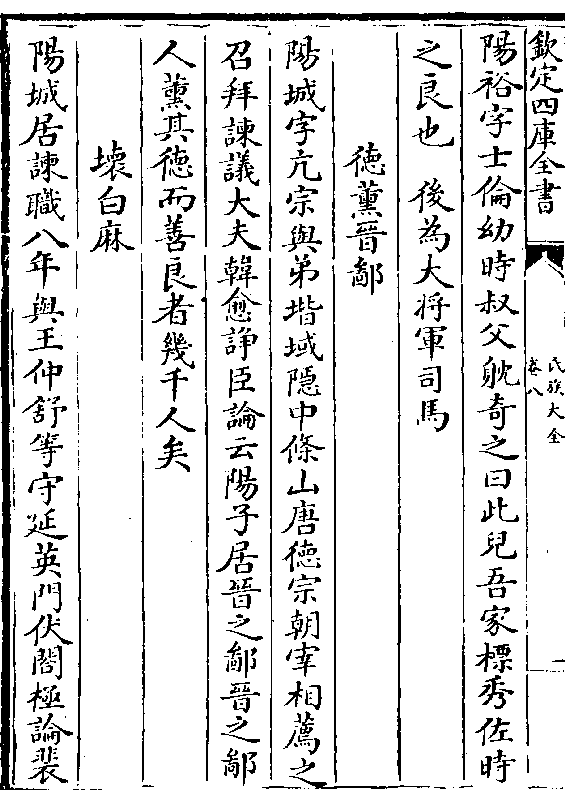 欽定四庫全書
氏族大全
卷八
陽裕字士倫幼時叔父躭奇之曰此兒吾家標秀佐時
之良也　後為大将軍司馬
徳薰晉鄙
陽城字亢宗與弟堦域隠中條山唐徳宗朝宰相薦之
召拜諫議大夫韓愈諍臣論云陽子居晉之鄙晉之鄙
人薫其徳而善良者幾千人矣
壊白麻
陽城居諫職八年與王仲舒等守延英門伏閤極論裴